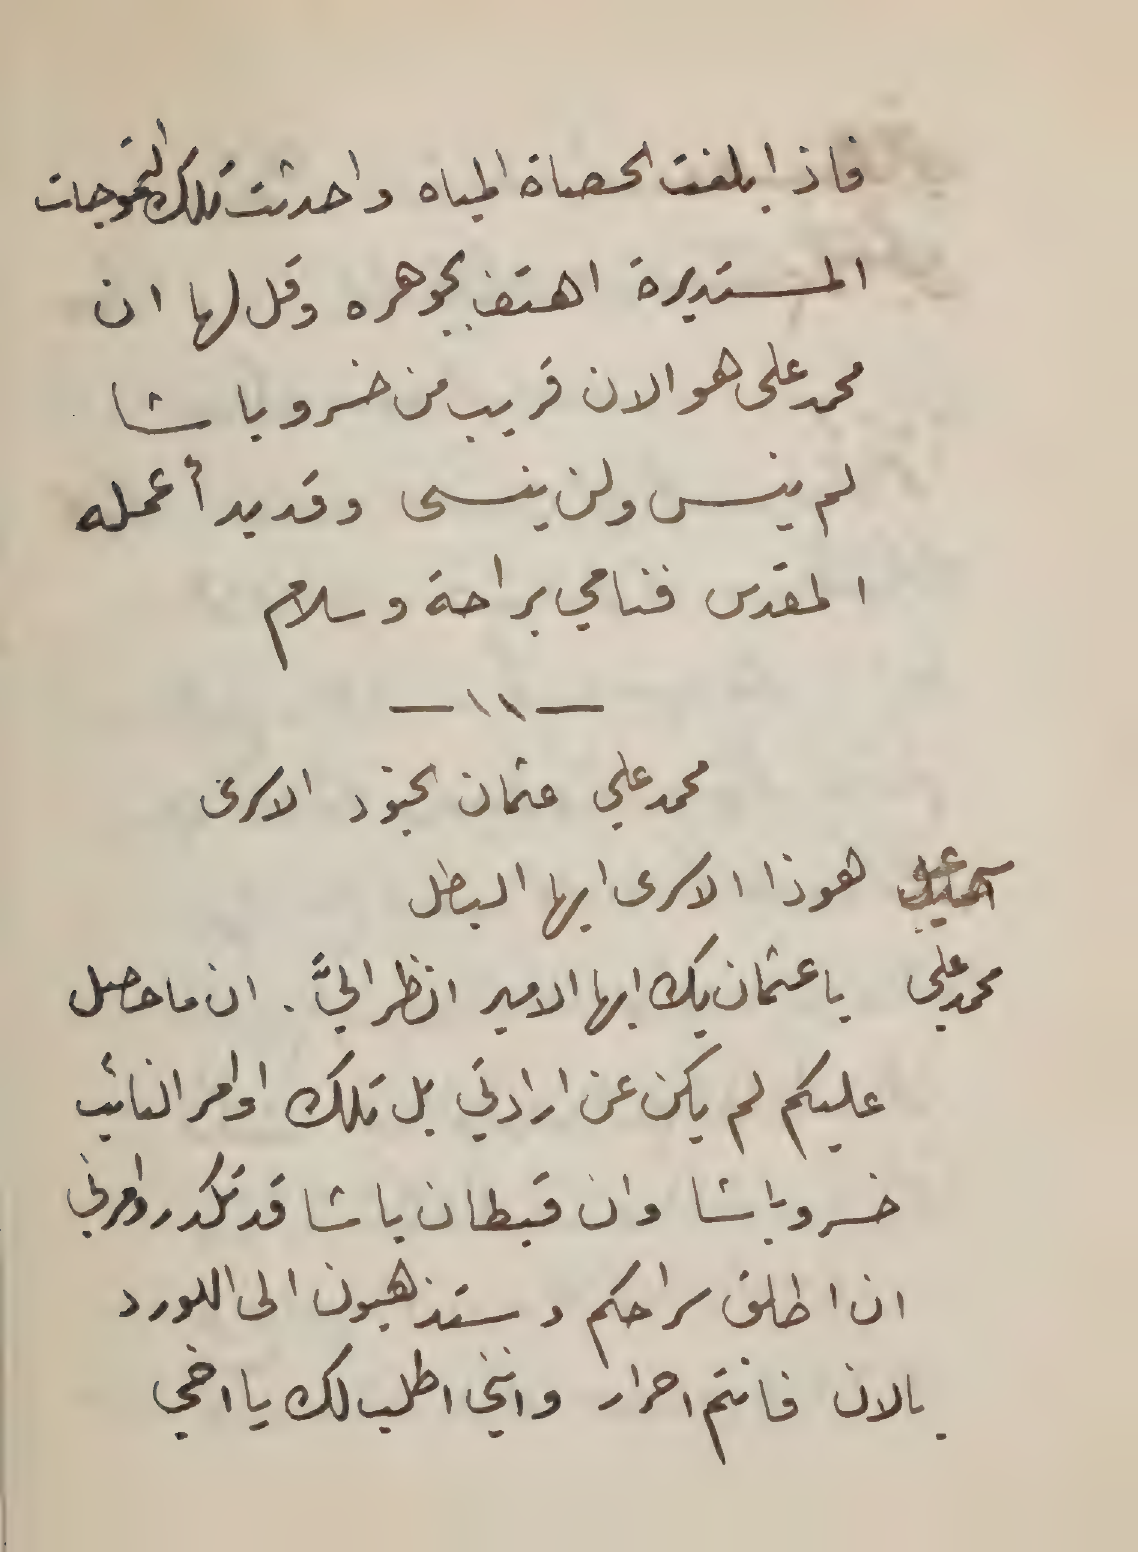 فاذا بلغت الحصاة المياه واحدثت تلك التموجات
المستديرة اهتف بجوهره وقل لها ان
محمد علي هو الان قريب من خسرو باشا
لم ينس ولن ينسى وقد بدأ عمله
المقدس فنامي براحة وسلام
— ١١ —
محمد علي عثمان الجنود الاسرى
اسماعيل هوذا الاسرى ايها البطل
محمد علي يا عثمان بك ايها الامير انظر اليَّ . ان ما حصل
عليكم لم يكن عن ارادتي بل تلك اوامر النائب
خسرو باشا وان قبطان باشا قد تكدر وامرني
ان اطلق سراحكم وستذهبون الى اللورد
بالان فانتم احرار وانني اطلب لك يا اخي